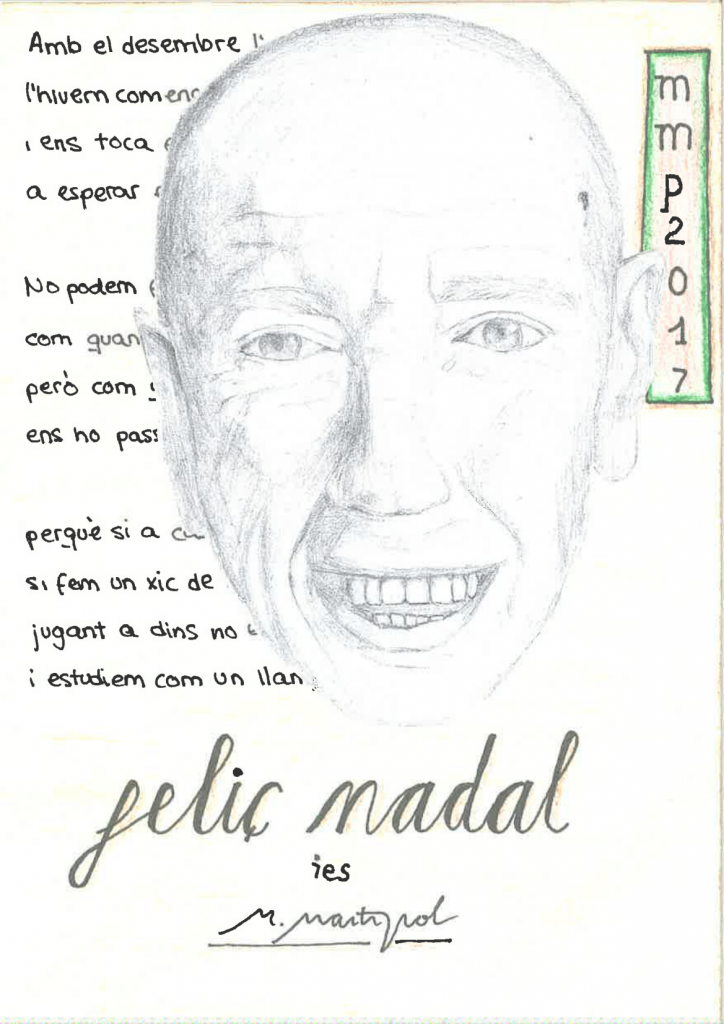 Amb el desembre
l'hivern
i ens toca
a esperar
No podem
com
però com
ens ho
perquè si a
si fem un xic de
jugant a dins no
i estudiem com un
mmp2017
feliç nadal
ies
M. Martí Pol